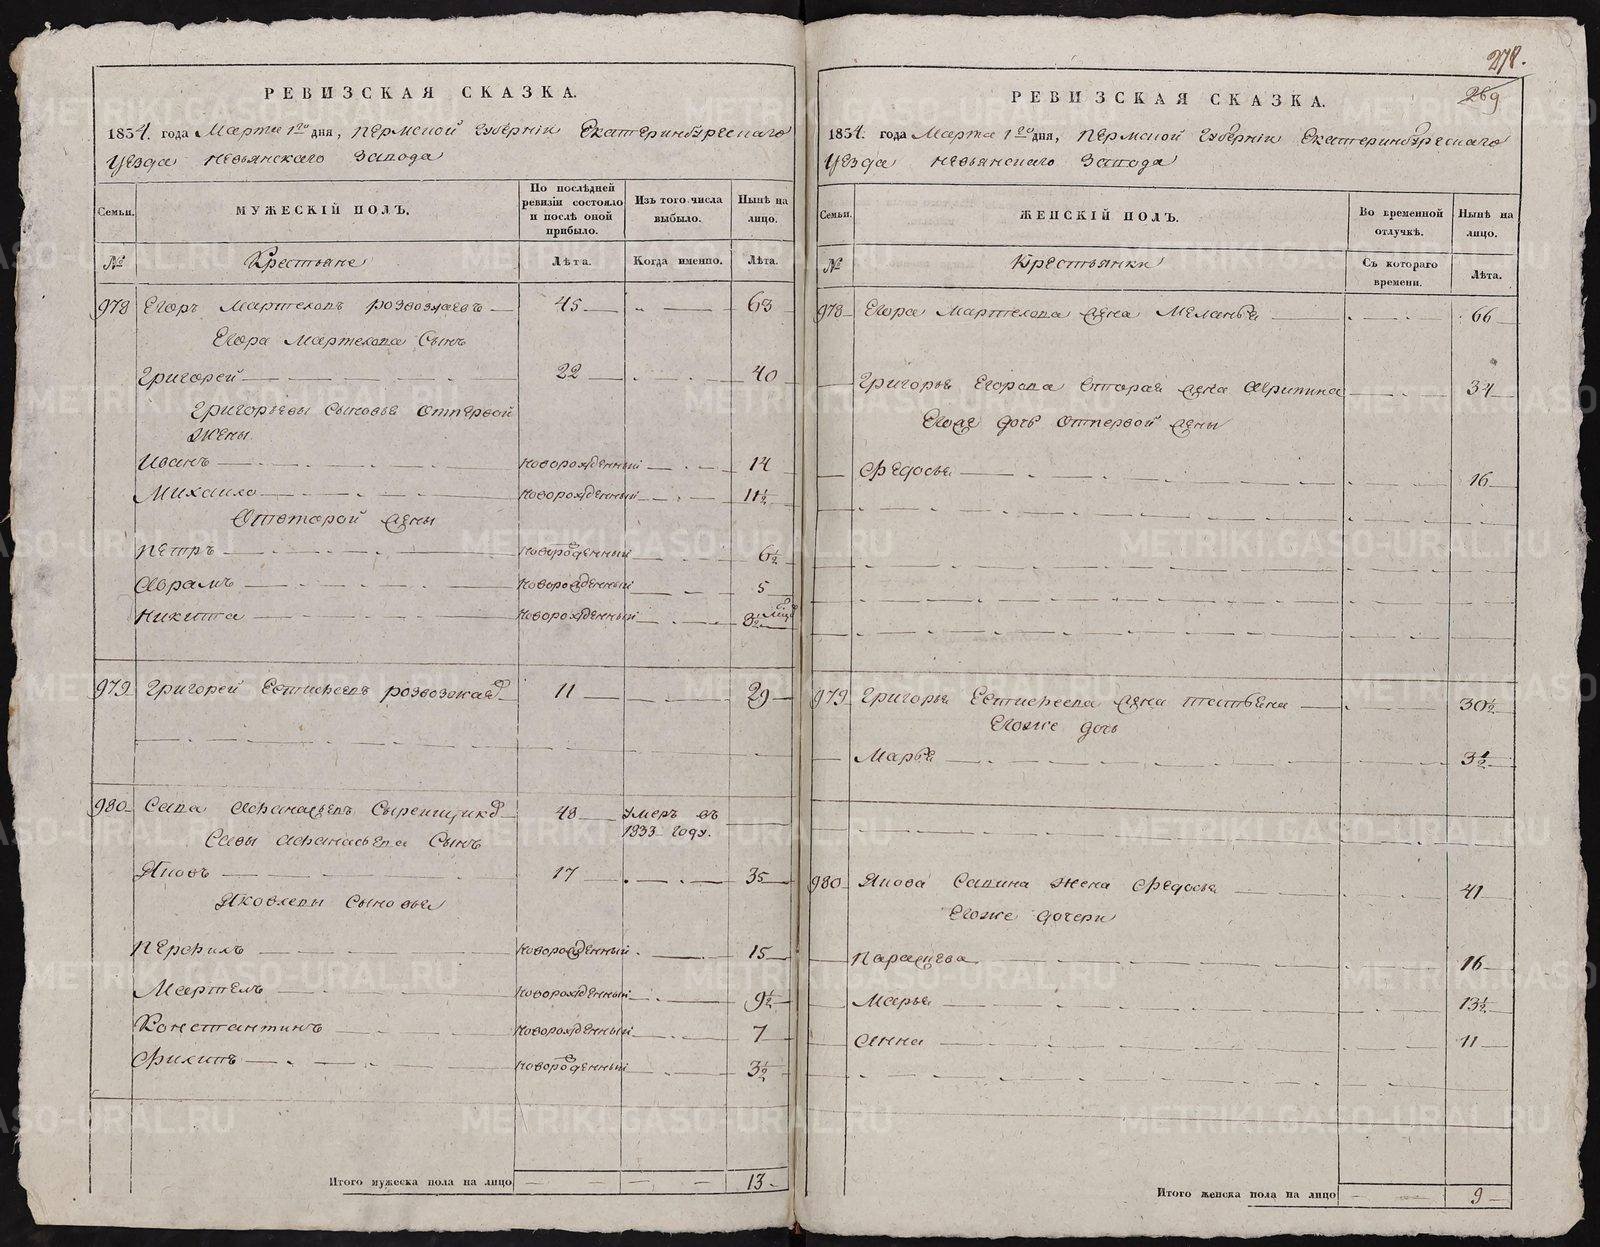 РЕВИЗСКАЯ СКАЗКА.
1834. года Марта 1го дня, Пермской Губернiи Екатеринбургскаго
Уезда Невьянскаго Завода
Семьи.
МУЖЕСКIЙ ПОЛЪ.
По послѣдней ревизiи состояло и послѣ оной прибыло.
Изъ того числа выбыло.
Нынѣ на лицо.
№
Крестьяне
Лѣта.
Когда именно.
Лѣта.
978 Егоръ Мартемовъ 45 63
Егора Мартемова Сынъ
Григорей 22 40
Григорьевы сыновья отпервой
Жены.
Иванъ новорожденный 14
Михаило новорожденный 11½
Отвторой жены
Петръ новорожденный 6½
Абрамъ новорожденный 5
Никита новорожденный
979 Григорей Евтифеевъ 11 29
980 Сава Афанасьевъ Сырейщиковъ 48 умеръ въ
1833 году.
Савы Афанасьева Сынъ
Яковъ 17 35
Яковлевы сыновья
Перфилъ новорожденный 15
новорожденный 9½
Константинъ новорожденный 7
Филипъ новорожденный 3½
Итого мужеска пола на лицо 13
278.
269
РЕВИЗСКАЯ СКАЗКА.
1834. года Марта 1го дня, Пермской Губернiи Екатеринбургскаго
Уезда Невьянскаго Завода
Семьи.
ЖЕНСКIЙ ПОЛЪ.
Во временной отлучкѣ.
Нынѣ на лицо.
№
Крестьянки
Съ котораго времени.
Лѣта.
978 Егора Мартемова жена Меланья 66
Григорья Егорова вторая жена Акрипина 34
Егоже дочь отпервой жены
Федосья 16
979 Григорья Евтифеева жена Татьяна 30½
Егоже дочь
Марья 3½
980 Якова Савина жена Федосья 41
Егоже дочери
Парасковья 16
Марья 13½
Анна 11
Итого женска пола на лицо 9
METRIKI.GASO-URAL.RU